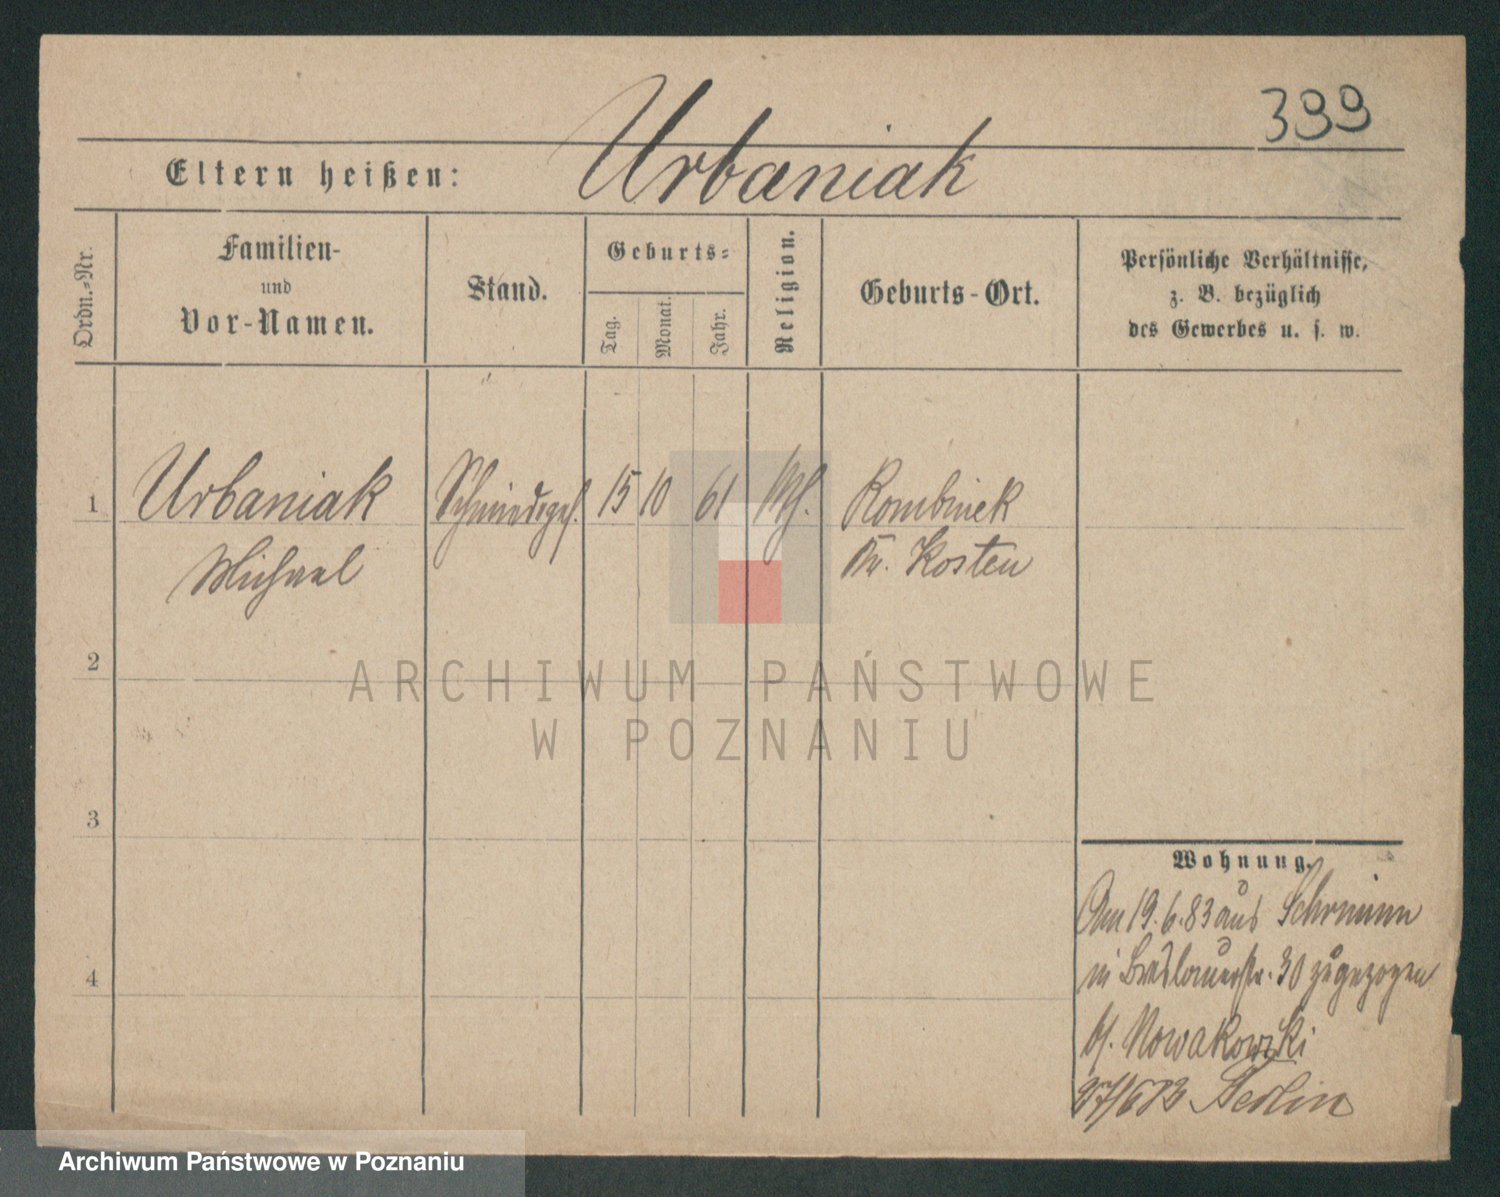 399
Urbaniak
Eltern heißen:
Ordn.-Nr.
Familien-
und
Vor-Namen.
Stand.
Geburts-
Tag.
Monat.
Jahr.
Religion.
Geburts-Ort.
Persönliche Verhältnisse,
z. B. bezüglich
des Gewerbes u. s. w.
1 Urbaniak Schmiedeges. 15 10 61 Kombinek
Michael Kr. Kosten
2
3
4
Wohnung.
Am 19.6.83 aus Schrimm
in Breslauerstr. 30 zugezogen
b/. Nowakowski
27/6 83 Berlin
ARCHIWUM PAŃSTWOWE
W POZNANIU
Archiwum Państwowe w Poznaniu